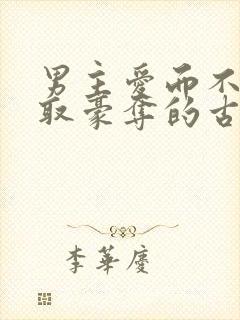 男主爱而不
取豪夺的古
李華慶